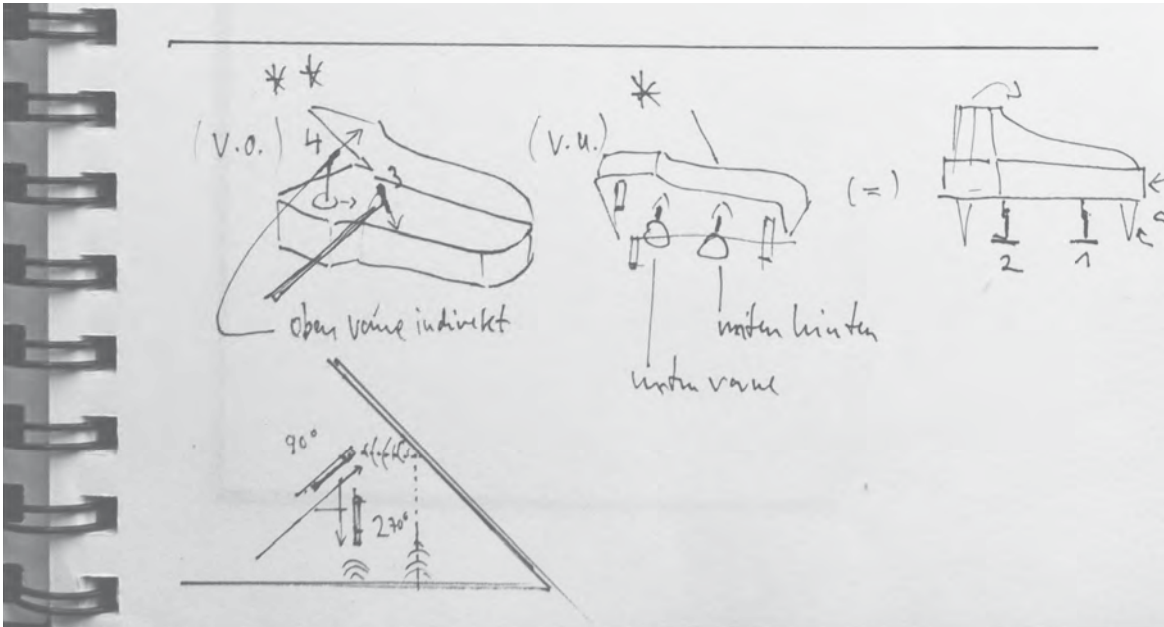 (V.O.) 4
3
(V.U.)
(=)
2 1
oben vorne indirekt
unten hinten
unten vorne
90°
270°